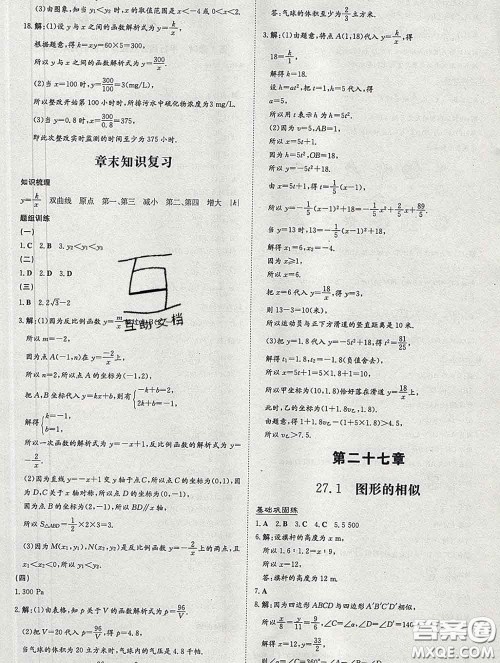 (3)由图象,当y<y₂时,x的取值范围是x<-4或0<x<2.
18.解:(1)由题意,设y与x之间的函数解析式为y=k/x.
根据题意,得k=xy=60×5=300.
所以y与x之间的函数解析式为y=300/x.
(2)当x=100时,y=300/100=3(mg/L),
所以整改开始第100小时时,所排污水中硫化物浓度为3mg/L.
(3)当y=0.8时,x=300/0.8=375,
即此次整改实时监测的时间至少为375小时.
章末知识复习
知识梳理
y=k/x 双曲线 原点 第一、第三 减小 第二、第四 增大 |k|
题组训练
(一)
1.C 2.B 3.y₂<y₁<y₃
(二)
1.D 2.A 3.D
(三)
1.B 2.2√3-2
3.解:(1)因为反比例函数y=m/x
所以m=-2.
因为点A(-1,n)在y=-2/x上,
所以n=2,所以点A的坐标为(-1,2).
把点A,B的坐标代入,得{-k+b=2, 2k+b=-1,
解得{k=-1, b=1,
所以一次函数的解析式为y=-x+1,反比例函数的解析式为y=-2/x.
(2)因为直线y=-x+1交y轴于点C,所以C(0,1).因为D,C关于x轴对称,所以D(0,-1).
因为B(2,-1),所以BD∥x轴,
所以S△ABD=1/2×2×3=3.
(3)因为M(x₁,y₁),N(x₂,y₂)是反比例函数y=-2/x
(四)
1.300 Pa
2.解:(1)由表格,知p关于V的函数解析式为p=96/V.
(2)因为p=96/V,所以代入V=20,得p=4.8,
当气球的体积为20立方米时,气球内气体的气压是4.8
答:气球的体积至少为2/3立方米.
3.解:(1)由题意,将点A(1,18)代入y=k/x,得18=k/1.
解得k=18.
设h=at²,把t=1,h=5代入,得
a=5,
所以用t表示h为h=5t².
(2)因为v=5,AB=1,
所以x=5t+1.
因为h=5t²,OB=18,
所以y=-5t²+18.
由x=5t+1,得t=1/5(x-1),
所以y=-1/5(x-1)²+18或y=-1/5x²+2/5x+89/5.
当y=13时,13=-1/5(x-1)²+18.
解得x₁=6,x₂=-4.
因为x≥1,
所以x=6.
把x=6代入y=18/x,得y=3,
则13-3=10(米).
所以运动员与正下方滑道的竖直距离是10米.
(3)由题意,把y=1.8代入y=-5t²+18,
得t²=81/25,
解得t₁=1.8,t₂=-1.8(负值舍去),
所以x=10,
所以甲坐标为(10,1.8)恰好落在滑道y=18/x上.
此时,乙的坐标为(1+1.8v乙,1.8).
由题意,得1+1.8v乙-(1+5×1.8)>4.5,
所以v乙>7.5.
第二十七章
27.1 图形的相似
基础巩固练
1.A 2.B 3.A 4.C 5.5 500
6.解:设旗杆的高度为x m,
所以1.6∶1.2=x∶9,
所以x=12.
答:旗杆的高度为12 m.
7.A
8.解:因为四边形ABCD与四边形EFGH相似,
互助文档
答案圈
MXQE.COM